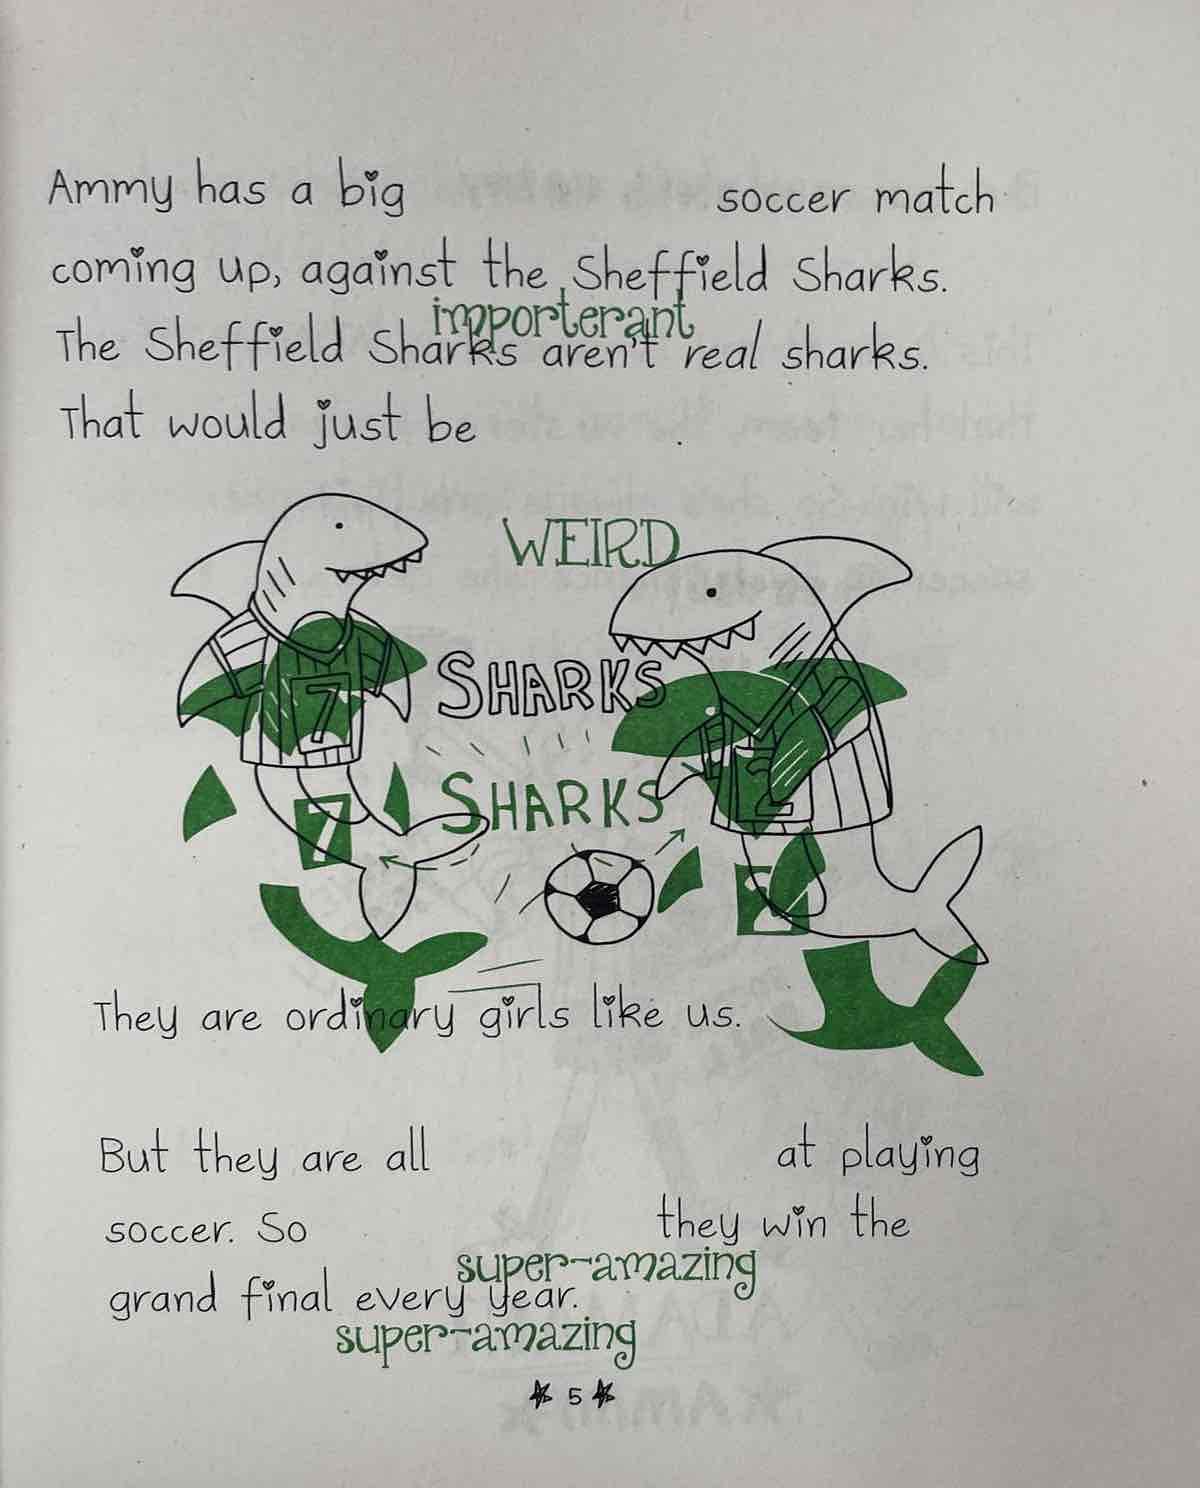 Ammy has a big soccer match
coming up, against the Sheffield Sharks.
importerant
The Sheffield Sharks aren't real sharks.
That would just be .
WEIRD
SHARKS
7
2
SHARKS
7
2
They are ordinary girls like us.
But they are all at playing
soccer. So they win the
super-amazing
grand final every year.
super-amazing
5